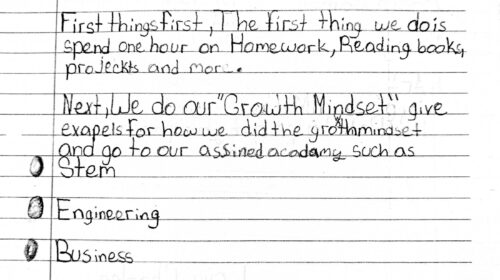 First things first, The first thing we do is
spend one hour on Homework, Reading books,
projeckts and more.
Next, We do our "Growth Mindset" give
exapels for how we did the grothmindset
and go to our assined acadamy such as
Stem
Engineering
Business